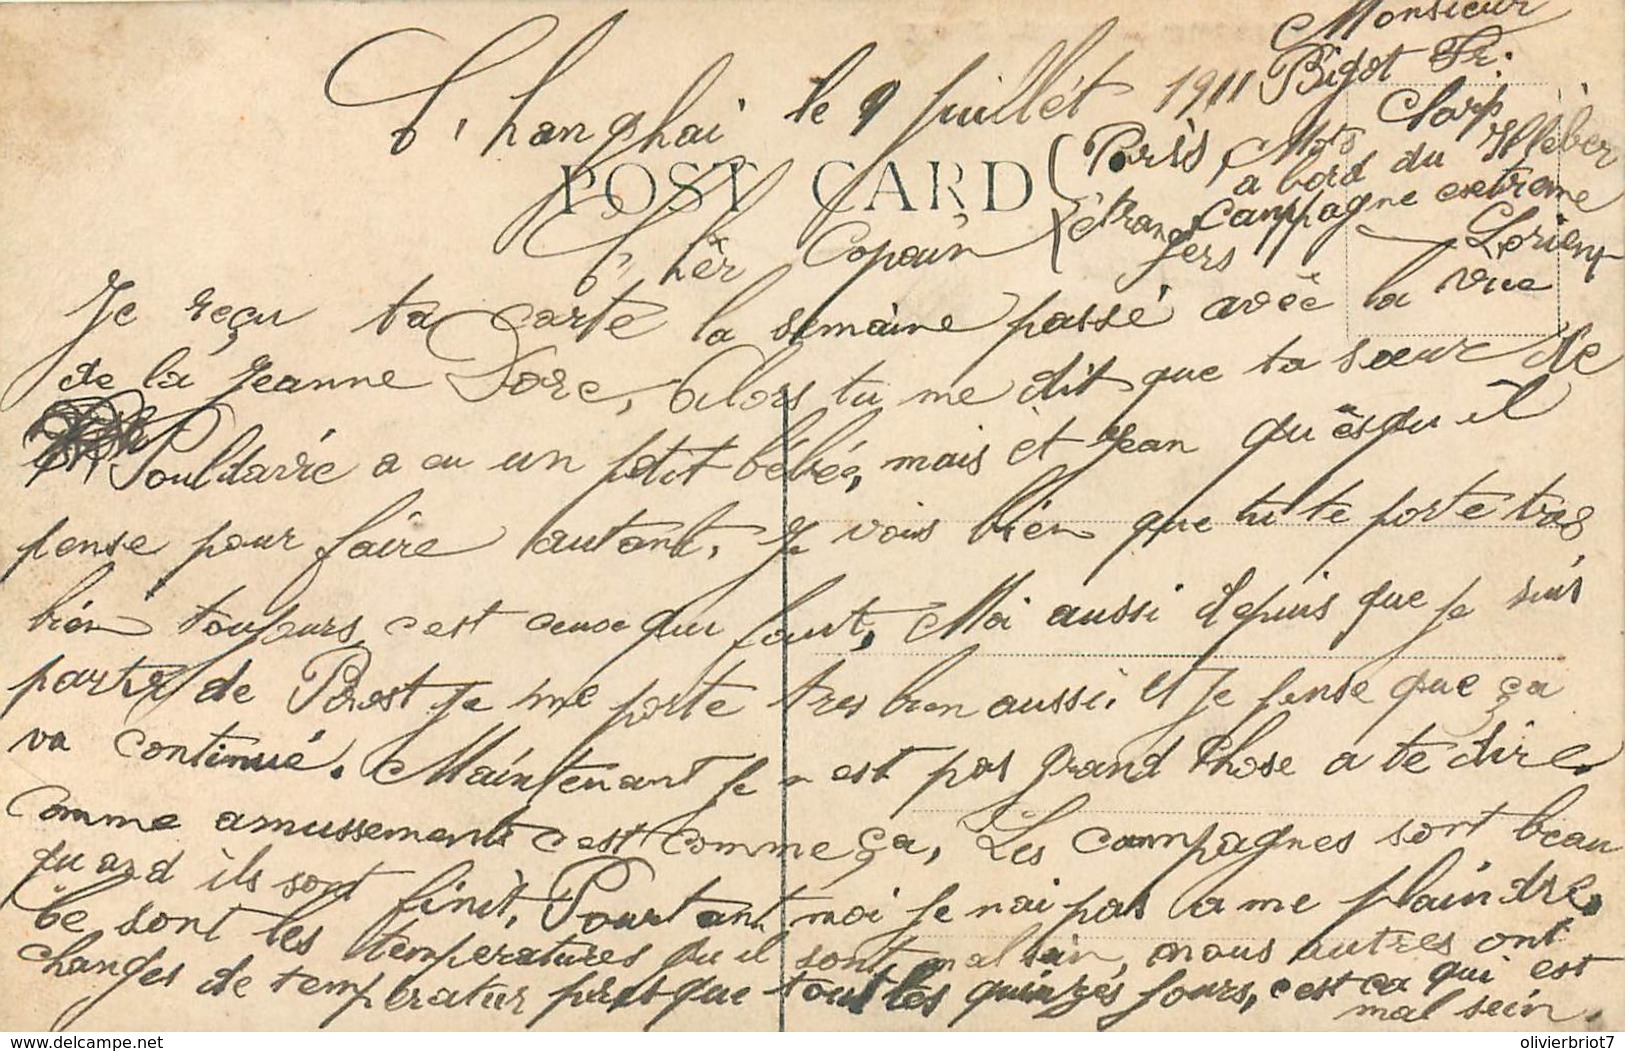 Shanghai le 9 Juillét 1911
Monsieur
Bigot Fr.
Charp
Paris, Moto
a bord du Kléber
étrangers Campagne extreme
Lorient
POST CARD
Chér Copain
Je reçu ta carte la semaine passé avec la vue
de la Jeanne Dore, Alors tu me dit que ta sœur de
Pouldavie a eu un petit bébée, mais et Jean qu'esqu il
pense pour faire autant. Je vois bien que tu te porte tres
bien toujours, c'est ceuse qui faut, Moi aussi depuis que je suis
partir de Brest je me porte tres bien aussi, et je pense que ça
va continué. Maintenant Je n est pas grand Chose a te dire
comme amussements c'est comme ça, Les campagnes sont beau
quand ils sont finit, Pourtant moi je nai pas a me plaindre,
Ce sont les temperatures qu il sont mal sain, nous autres ont
changes de temperatur presque tout les quinzes jours, c'est ca qui est
mal sein.
delcampe.net
olivierbriot7